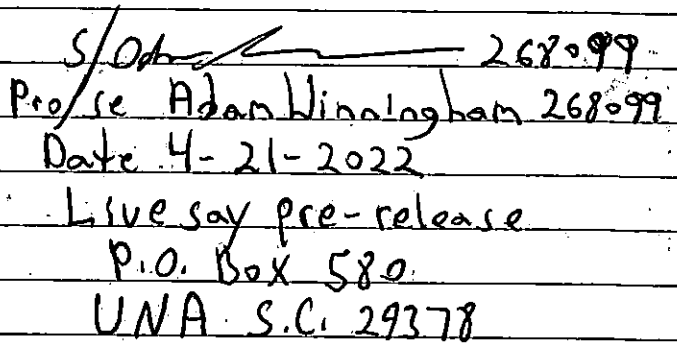 S/ 268099
Pro/se Adam Winningham 268099
Date 4-21-2022
Livesay pre-release
P.O. Box 580
UNA S.C. 29378